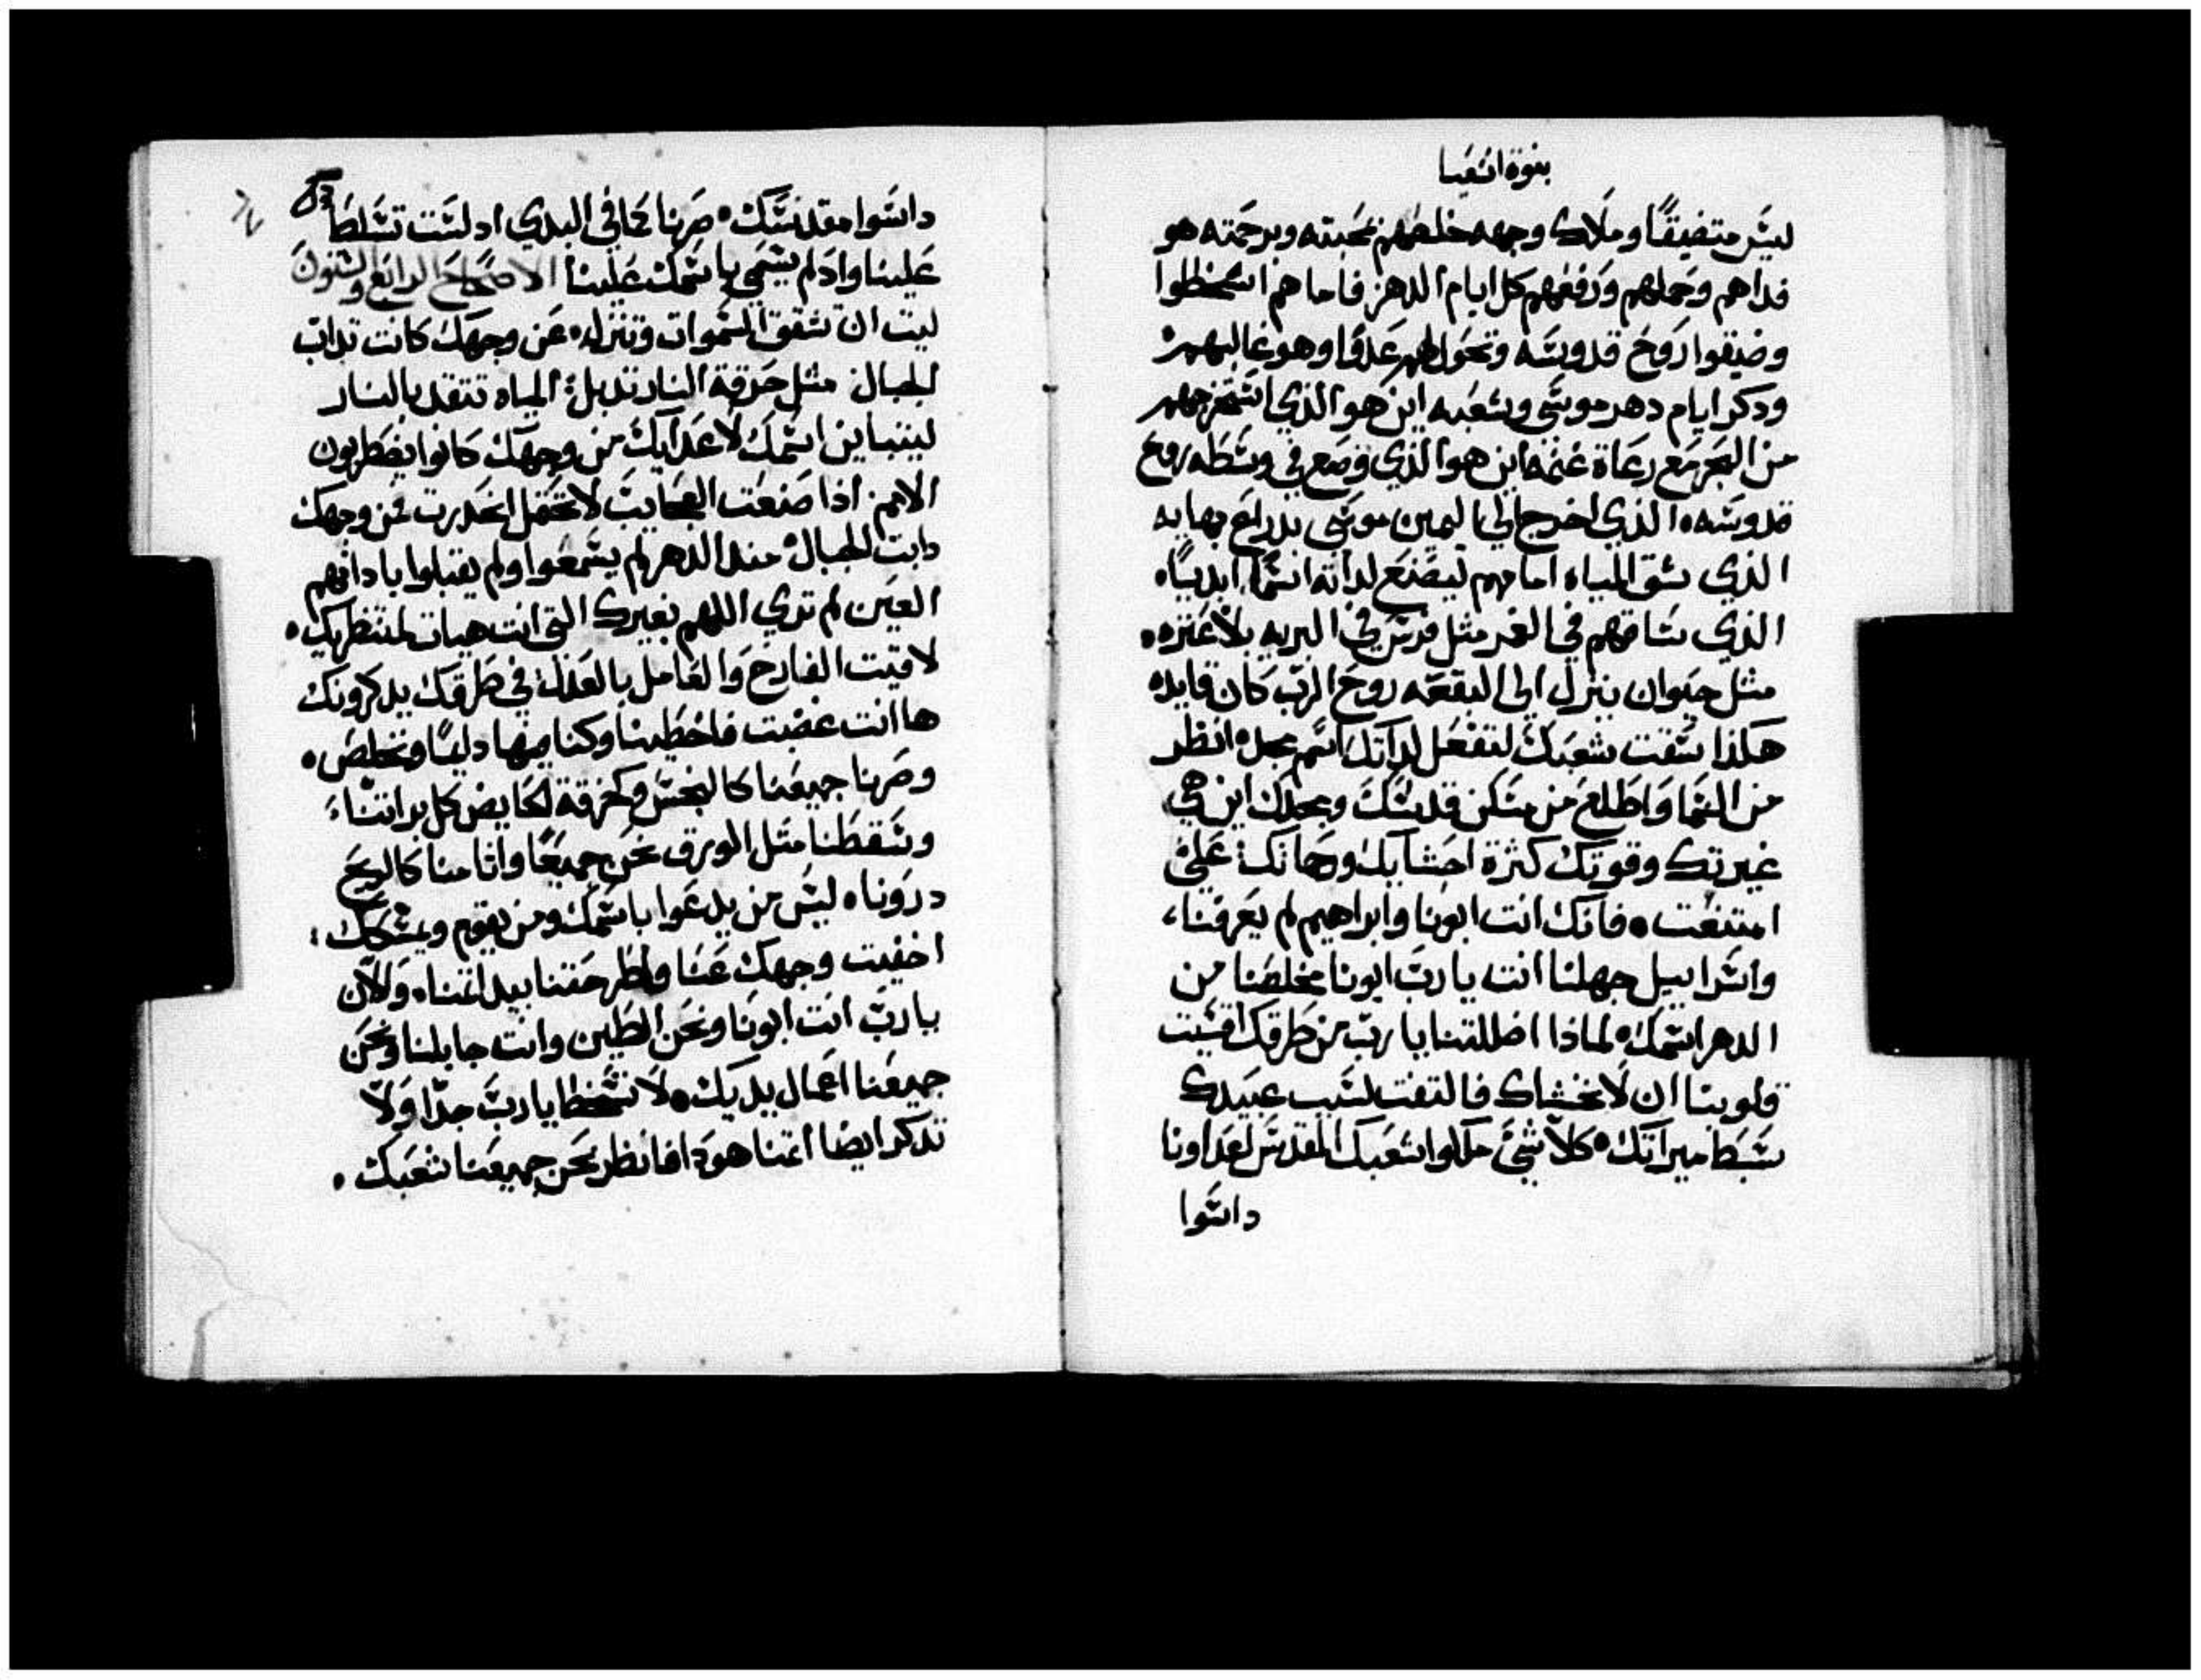 بنوة اشعيا
ليس متضيقًا وملاك وجهه خلصهم بمحبته وبرحمته هو
فداهم وحملهم ورفعهم كل ايام الدهر فاما هم اسخطوا
وضيقوا روح قدوسه وتحول لهم عدوًا وهو غالبهم
ودكر ايام دهر موسى وشعبه اين هو الذي اصعدهم
من البحر مع رعاة غنمه اين هو الذي وضع في وسطه روح
قدوسه الذي اخرج الي اليمين موسى بدراع بهايه
الذي شق المياه امامهم ليصنع لداته اسمًا ابديًا
الذي ساقهم في الغمر مثل فرس في البريه بلا عتره
مثل حيوان ينزل الى البقعه روح الرب كان قايده
هكذا سقت شعبك لتفعل لداتك اسم مجد انظر
من السما واطلع من مسكن قدسك ومجدك اين هي
غيرتك وقوتك كثرة احشايك ورحماتك علي
امتنعت فانك انت ابونا وابراهيم لم يعرفنا
واسراييل جهلنا انت يا رب ابونا مخلصنا من
الدهر اسمك لماذا اضللتنا يا رب من طرقك اقسيت
قلوبنا ان لا نخشاك فالتفت لسبب عبيدك
سبط ميراتك كلا شيئ ملكوا شعبك المقدس اعداونا
داسوا
داسوا مقدستك صرنا كما في البدي اد لست تسلط
علينا واد لم يسمى باسمك علينا الاصحاح الرابع والستون
ليت ان تشقق السموات وتنزل عن وجهك كانت تداب
الجبال مثل حرقة النار تدبل المياه تتقد بالنار
ليتباين اسمك لاعدايك من وجهك كانوا يضطربون
الامم اذا صنعت العجايب لا نحتمل انحدرت من وجهك
دابت الجبال مند الدهر لم يسمعوا ولم يقبلوا بادانهم
العين لم تري اللهم بغيرك التي انت هيات لمنتظريك
لاقيت الفارح والعامل بالعدل في طرقك يدكرونك
ها انت غضبت فاخطينا وكنا فيها دايمًا ونخلص
وصرنا جميعنا كالنجس وكخرقة الحايض كل براتنا
وسقطنا مثل الورق نحن جميعًا واثامنا كالريح
درونا ليس من يدعوا باسمك ومن يقوم ويمسكك
اخفيت وجهك عنا وطرحتنا بيد اتمنا والان
يا رب انت ابونا ونحن الطين وانت جابلنا ونحن
جميعنا اعمال يديك لا تسخط يا رب جدًا ولا
تدكر ايضا اتمنا هودا فانظر نحن جميعنا شعبك